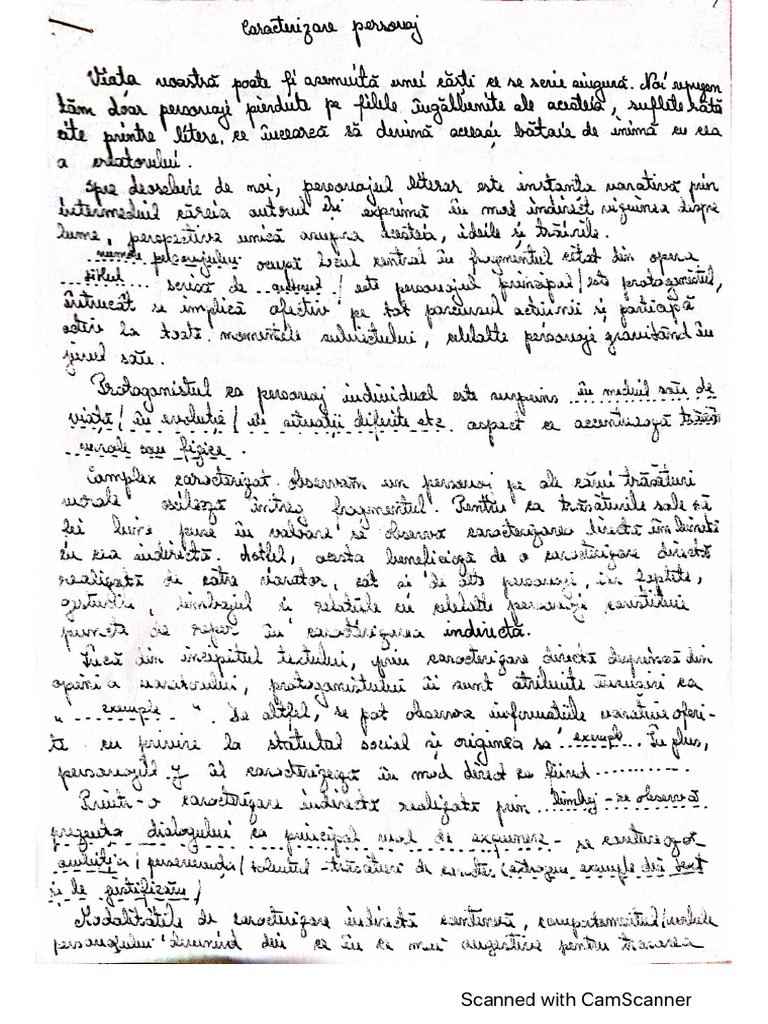 Caracterizare personaj
Viața noastră poate fi asemuită unei cărți ce se scrie singură. Noi reprezen
tăm doar personaje pierdute pe filele îngălbenite ale acesteia, suflete rătă
cite printre litere, ce încearcă să devină aceeași bătaie de inimă cu cea
a creatorului.
Spre deosebire de noi, personajul literar este instanța narativă prin
intermediul căreia autorul își exprimă în mod indirect viziunea despre
lume, perspectiva unică asupra acesteia, ideile și trăirile.
numele personajului ocupă locul central în fragmentul citat din opera
titlul scrisă de autorul / este personajul principal / este protagonistul,
întrucât se implică afectiv pe tot parcursul acțiunii și participă
activ la toate momentele subiectului, celelalte personaje gravitând în
jurul său.
Protagonistul ca personaj individual este surprins în mediul său de
viață / în evoluție / în situații diferite etc. aspect ce accentuează trăsă
morale sau fizice.
Complex caracterizat observăm un personaj pe ale cărui trăsături
morale oscilează întreg fragmentul. Pentru ca trăsăturile sale să
fie bine puse în valoare se observă caracterizarea directă îmbinată
cu cea indirectă. Astfel, acesta beneficiază de o caracterizare directă
realizată de către narator, cât și de alte personaje, iar faptele,
gesturile, limbajul și relațiile cu celelalte personaje constituie
puncte de reper în caracterizarea indirectă.
Încă din începutul textului, prin caracterizare directă desprinsă din
opinia naratorului, protagonistului îi sunt atribuite însușiri ca
" exemple ". De altfel, se pot observa informațiile narative oferi-
te cu privire la statutul social și originea sa exemple. În plus,
personajul y îl caracterizează în mod direct ca fiind ...........
Printr-o caracterizare indirectă realizată prin limbaj - se observă
prezența dialogului ca principal mod de expunere - se conturează
ambiția / perseverența / talentul - trăsături de caracter (extragem exemple din text
și le justificăm)
Modalitățile de caracterizare indirectă continuă, comportamentul / vorbele
personajului devenind din ce în ce mai sugestive pentru trasarea
Scanned with CamScanner